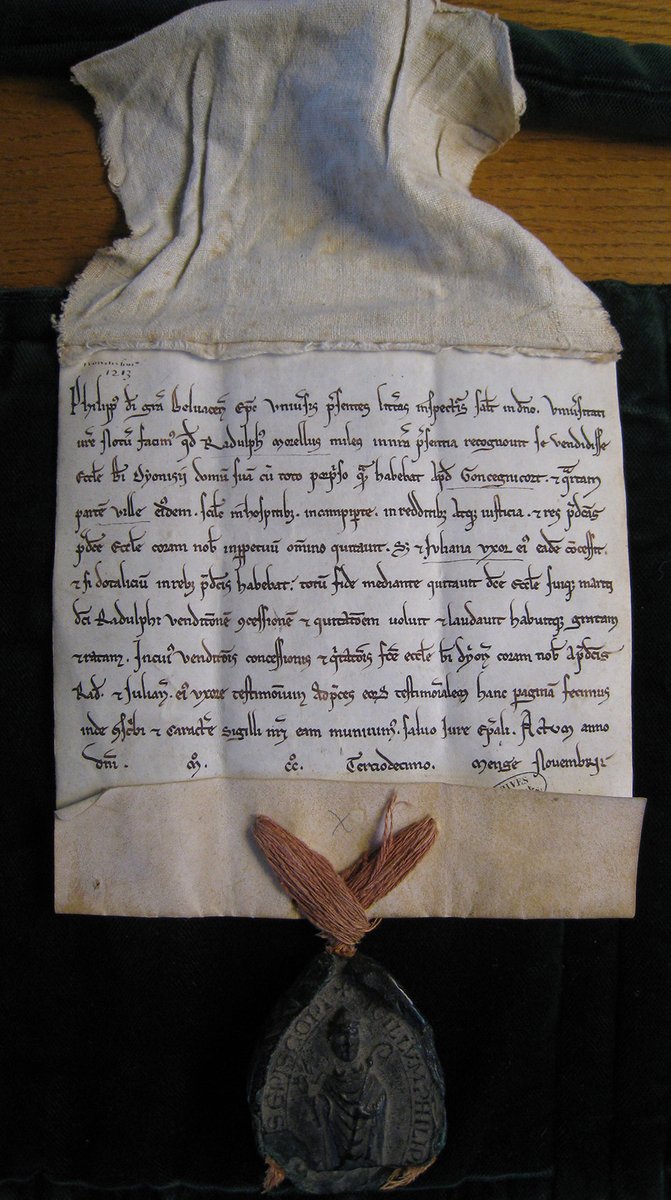 1213
Philipp' di gra Beluacen Epc Uniusis psentes littas inspectis salt in dno. Uniusitati
ure Notu facim' qd Radulph' morellus miles in nra psentia recognouit se vendidisse
Eccle bi Dyonisii domu sua cu toto porpso que habebat apd Goncegnicort. & qrtam
parte ville eidem. scilic in hospitib; in campiparte. in redditib; atq; iusticia. & res pdcas
pdce Eccle coram nob inppetuu omnino quitauit. S; & Juliana uxor ei' eade ccessit.
& si dotaliciu in reb; pdcis habebat; totu fide mediante quitauit dce Eccle suiq; mariti
dci Radulphi venditione 9cessione & quitatoem uoluit & laudauit habuitq; gratam
& ratam. In cui' venditois concessionis & qtatois fce eccle bi dyon coram nob a pdcis
Rad. & Julian. ei' uxore testimonium ad pces eor testimoialem hanc paginam fecimus
inde scbi & caractere sigilli nri eam muniuim'. saluo iure epali. Actum anno
dni. M. CC. Terciodecimo. mense Nouembri
IVES
X
S EPISCOPI ILLVM PHILIP